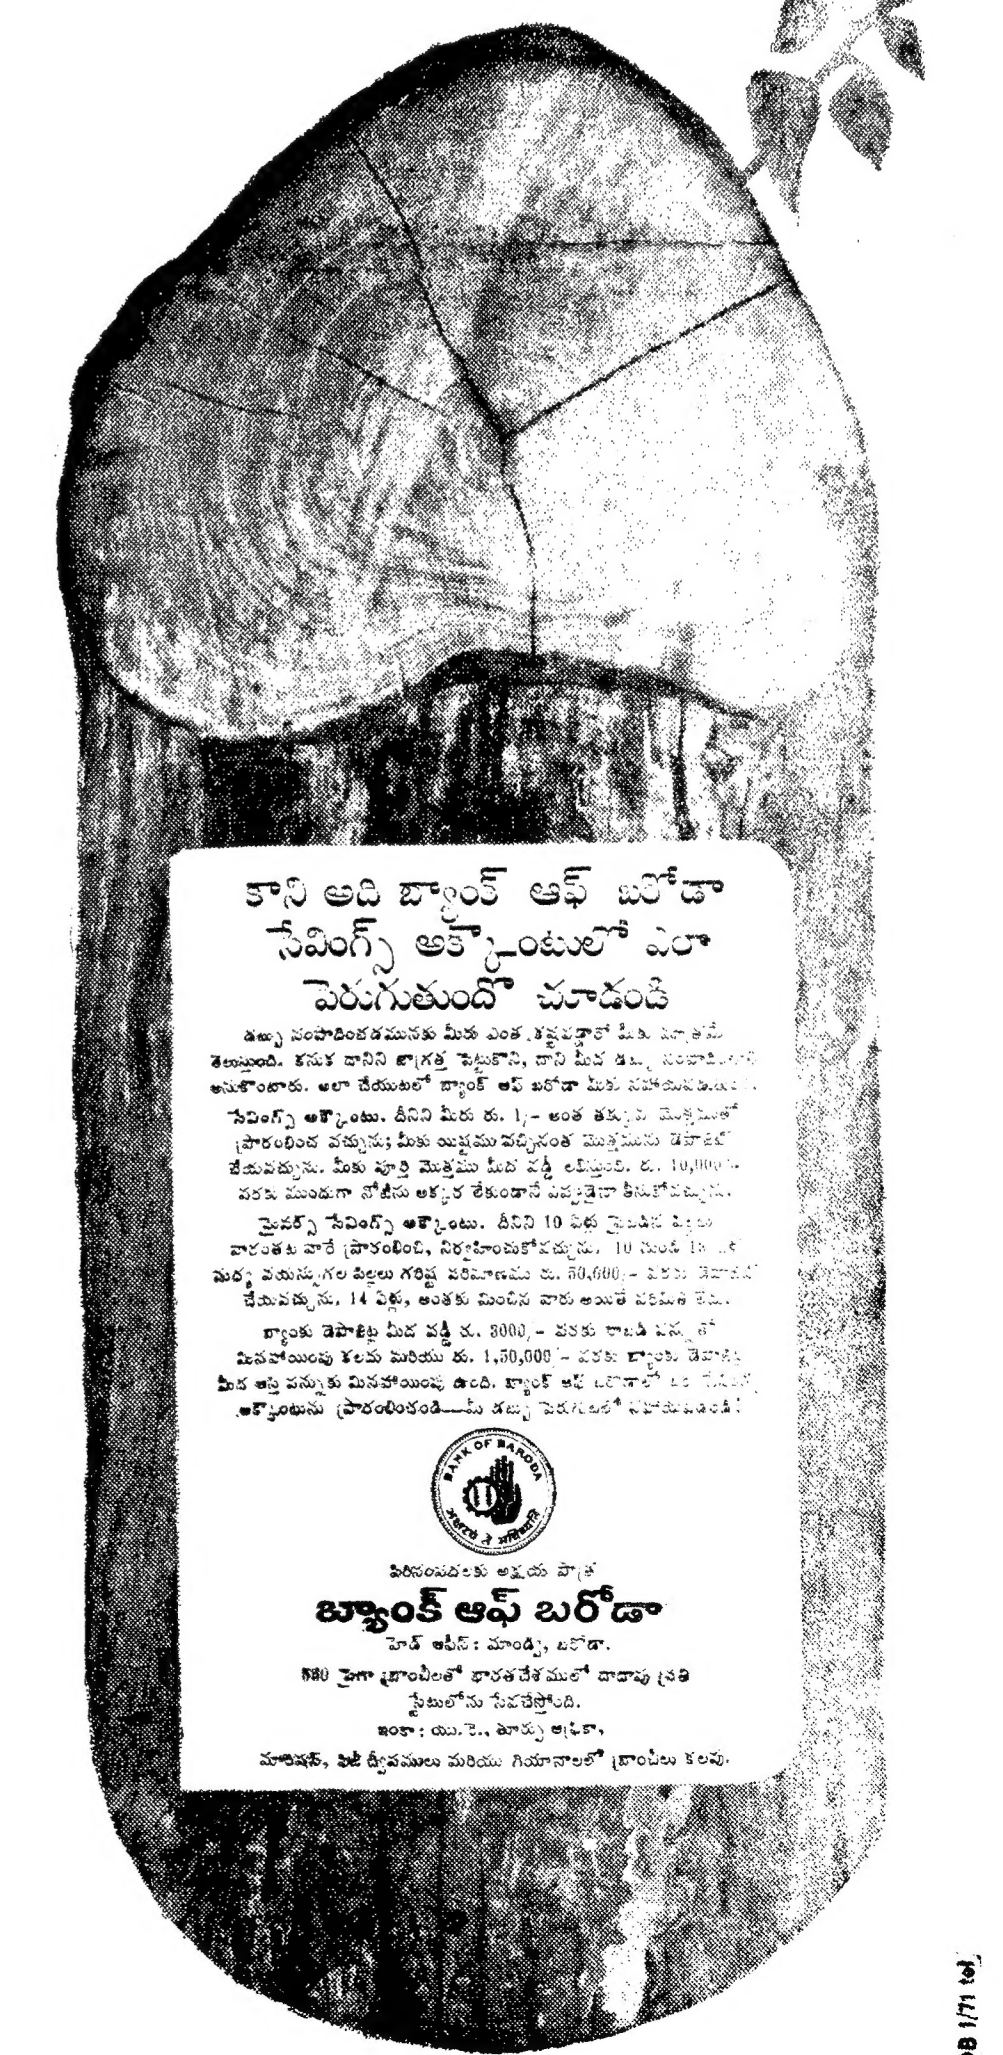 కాని అది బ్యాంక్ ఆఫ్ బరోడా
సేవింగ్స్ అక్కౌంటులో ఎలా
పెరుగుతుందో చూడండి
డబ్బు సంపాదించడమునకు మీరు ఎంత కష్టపడ్డారో మీకు మాత్రమే
తెలుస్తుంది. కనుక దానిని జాగ్రత్త పెట్టుకొని, దాని మీద డబ్బు
అనుకొంటారు. అలా చేయుటలో బ్యాంక్ ఆఫ్ బరోడా మీకు
సేవింగ్స్ అక్కౌంటు. దీనిని మీరు రు. 1/- అంత తక్కువ మొత్తముతో
ప్రారంభించ వచ్చును; మీకు యిష్టము వచ్చినంత మొత్తమును డెపాజిట్
చేయవచ్చును. మీకు పూర్తి మొత్తము మీద వడ్డీ లభిస్తుంది. రు. 10,000/-
వరకు ముందుగా నోటీసు అక్కర లేకుండానే ఎప్పుడైనా తీసుకోవచ్చును.
మైనర్స్ సేవింగ్స్ అక్కౌంటు. దీనిని 10 ఏళ్లు పైబడిన పిల్లలు
వారంతట వారే ప్రారంభించి, నిర్వహించుకోవచ్చును. 10 నుండి
మధ్య వయస్సుగల పిల్లలు గరిష్ట పరిమాణము రు. 50,000/- వరకు డెపాజిట్
చేయవచ్చును. 14 ఏళ్లు, అంతకు మించిన వారు అయితే పరిమితి లేదు.
బ్యాంకు డెపాజిట్ల మీద వడ్డీ రు. 3000/- వరకు రాబడి పన్నుతో
మినహాయింపు కలదు మరియు రు. 1,50,000/- వరకు బ్యాంకు డెపాజిట్ల
మీద ఆస్తి పన్నుకు మినహాయింపు ఉంది. బ్యాంక్ ఆఫ్ బరోడాలో ఒక సేవింగ్స్
అక్కౌంటును ప్రారంభించండి—మీ డబ్బు పెరుగుటలో సహాయపడండి!
BANK OF BARODA
సిరిసంపదలకు అక్షయ పాత్ర
బ్యాంక్ ఆఫ్ బరోడా
హెడ్ ఆఫీస్: మాండ్వి, బరోడా.
550 పైగా బ్రాంచీలతో భారతదేశములో దాదాపు ప్రతి
స్టేటులోను సేవచేస్తోంది.
ఇంకా: యు.కె., తూర్పు ఆఫ్రికా,
మారిషస్, ఫిజీ ద్వీపములు మరియు గియానాలలో బ్రాంచీలు కలవు.
OB 1/71 tel.